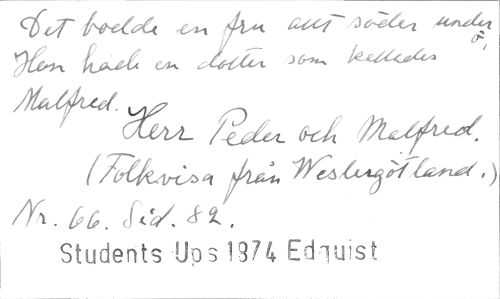 Det bodde en fru allt söder under ö,
Hon hade en dotter som kallades
Malfred.
Herr Peder och Malfred.
(Folkvisa från Westergötland.)
Nr. 66. Sid. 82.
Students Ups 1874 Edquist